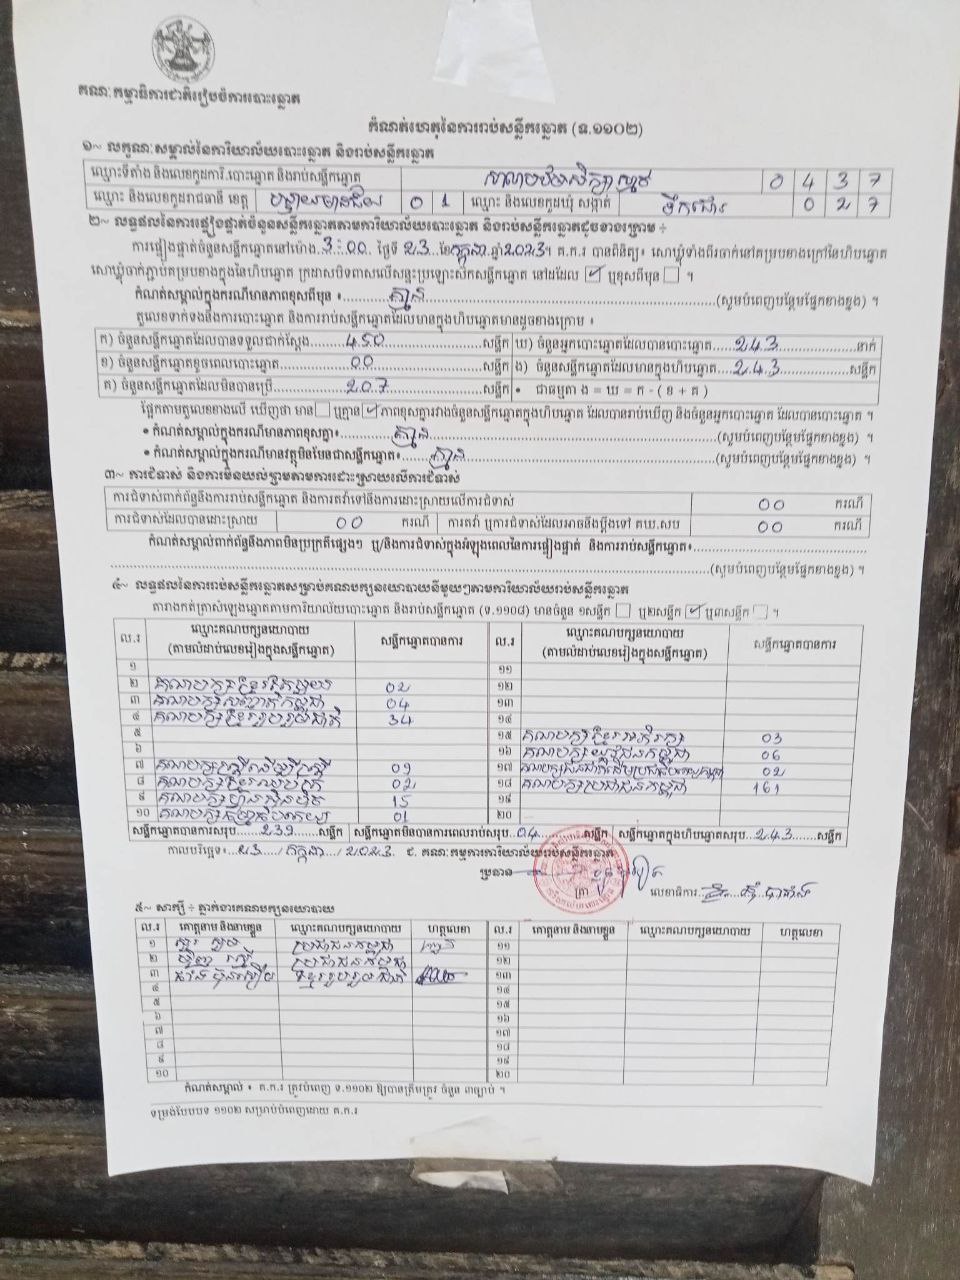 គណៈកម្មាធិការជាតិរៀបចំការបោះឆ្នោត
កំណត់ហេតុនៃការរាប់សន្លឹកឆ្នោត (ទ.១១០២)
១~ លក្ខណៈសម្គាល់នៃការិយាល័យបោះឆ្នោត និងរាប់សន្លឹកឆ្នោត
ឈ្មោះទីតាំង និងលេខកូដការិ.បោះឆ្នោត និងរាប់សន្លឹកឆ្នោត 0 4 3 7
ឈ្មោះ និងលេខកូដរាជធានី ខេត្ត បន្ទាយមានជ័យ 0 1 ឈ្មោះ និងលេខកូដឃុំ សង្កាត់ ទឹកជោរ 0 2 7
២~ លទ្ធផលនៃការផ្ទៀងផ្ទាត់ចំនួនសន្លឹកឆ្នោតតាមការិយាល័យបោះឆ្នោត និងរាប់សន្លឹកឆ្នោតដូចខាងក្រោម ÷
ការផ្ទៀងផ្ទាត់ចំនួនសន្លឹកឆ្នោតនៅម៉ោង 3:00 ថ្ងៃទី 23 ខែកក្កដា ឆ្នាំ2023។ គ.ក.រ បានពិនិត្យ៖ សោឃ្លុំទាំងពីរចាក់នៅគម្របខាងក្រៅនៃហិបឆ្នោត
សោឃ្លុំចាក់ភ្ជាប់គម្របខាងក្នុងនៃហិបឆ្នោត ក្រដាសបិទពាសលើសន្ទះប្រឡោះស៊កសន្លឹកឆ្នោត នៅដដែល ✓ ឬខុសពីមុន ។
កំណត់សម្គាល់ក្នុងករណីមានភាពខុសពីមុន ៖ គ្មាន (សូមបំពេញបន្ថែមផ្នែកខាងខ្នង) ។
តួលេខទាក់ទងនឹងការបោះឆ្នោត និងការរាប់សន្លឹកឆ្នោតដែលមានក្នុងហិបឆ្នោតមានដូចខាងក្រោម ៖
ក) ចំនួនសន្លឹកឆ្នោតដែលបានទទួលជាក់ស្តែង 450 សន្លឹក ឃ) ចំនួនអ្នកបោះឆ្នោតដែលបានបោះឆ្នោត 243 នាក់
ខ) ចំនួនសន្លឹកឆ្នោតខូចពេលបោះឆ្នោត 00 សន្លឹក ង) ចំនួនសន្លឹកឆ្នោតដែលមានក្នុងហិបឆ្នោត 243 សន្លឹក
គ) ចំនួនសន្លឹកឆ្នោតដែលមិនបានប្រើ 207 សន្លឹក • ជាធម្មតា ង = ឃ = ក - ( ខ + គ )
ផ្អែកតាមតួលេខខាងលើ ឃើញថា មាន ឬគ្មាន ✓ ភាពខុសគ្នារវាងចំនួនសន្លឹកឆ្នោតក្នុងហិបឆ្នោត ដែលបានរាប់ឃើញ និងចំនួនអ្នកបោះឆ្នោត ដែលបានបោះឆ្នោត ។
• កំណត់សម្គាល់ក្នុងករណីមានភាពខុសគ្នា៖ គ្មាន (សូមបំពេញបន្ថែមផ្នែកខាងខ្នង) ។
• កំណត់សម្គាល់ក្នុងករណីមានវត្ថុមិនមែនជាសន្លឹកឆ្នោត៖ គ្មាន (សូមបំពេញបន្ថែមផ្នែកខាងខ្នង) ។
៣~ ការជំទាស់ និងការមិនយល់ព្រមតាមការដោះស្រាយលើការជំទាស់
ការជំទាស់ពាក់ព័ន្ធនឹងការរាប់សន្លឹកឆ្នោត និងការតវ៉ាទៅនឹងការដោះស្រាយលើការជំទាស់ 00 ករណី
ការជំទាស់ដែលបានដោះស្រាយ 00 ករណី ការតវ៉ា ឬការជំទាស់ដែលអាចនឹងប្តឹងទៅ គឃ.សប 00 ករណី
កំណត់សម្គាល់ពាក់ព័ន្ធនឹងភាពមិនប្រក្រតីផ្សេងៗ ឬ/និងការជំទាស់ក្នុងអំឡុងពេលនៃការផ្ទៀងផ្ទាត់ និងការរាប់សន្លឹកឆ្នោត៖
(សូមបំពេញបន្ថែមផ្នែកខាងខ្នង) ។
៤~ លទ្ធផលនៃការរាប់សន្លឹកឆ្នោតសម្រាប់គណបក្សនយោបាយនីមួយៗតាមការិយាល័យរាប់សន្លឹកឆ្នោត
តារាងកត់ត្រាសំឡេងឆ្នោតតាមការិយាល័យបោះឆ្នោត និងរាប់សន្លឹកឆ្នោត (ទ.១១០៨) មានចំនួន ១សន្លឹក ឬ២សន្លឹក ✓ ឬ៣សន្លឹក ។
ល.រ ឈ្មោះគណបក្សនយោបាយ សន្លឹកឆ្នោតបានការ ល.រ ឈ្មោះគណបក្សនយោបាយ សន្លឹកឆ្នោតបានការ
(តាមលំដាប់លេខរៀងក្នុងសន្លឹកឆ្នោត) (តាមលំដាប់លេខរៀងក្នុងសន្លឹកឆ្នោត)
១ ១១
២ 02 ១២
៣ 04 ១៣
៤ គណបក្សខ្មែររួបរួមជាតិ 34 ១៤
៥ ១៥ គណបក្សខ្មែរអភិរក្ស 03
៦ ១៦ គណបក្សយុវជនកម្ពុជា 06
៧ គណបក្សស្ត្រីដើម្បីស្ត្រី 09 ១៧ 02
៨ 02 ១៨ គណបក្សប្រជាជនកម្ពុជា 161
៩ គណបក្សហ៊្វុនស៊ិនប៉ិច 15 ១៩
១០ 01 ២០
សន្លឹកឆ្នោតបានការសរុប 239 សន្លឹក សន្លឹកឆ្នោតមិនបានការពេលរាប់សរុប 04 សន្លឹក សន្លឹកឆ្នោតក្នុងហិបឆ្នោតសរុប 243 សន្លឹក
កាលបរិច្ឆេទ៖ 23 / កក្កដា / 2023 ជ. គណៈកម្មការការិយាល័យរាប់សន្លឹកឆ្នោត
ប្រធាន
ត្រា លេខាធិការ
៥~ សាក្សី ÷ ភ្នាក់ងារគណបក្សនយោបាយ
ល.រ គោត្តនាម និងនាមខ្លួន ឈ្មោះគណបក្សនយោបាយ ហត្ថលេខា ល.រ គោត្តនាម និងនាមខ្លួន ឈ្មោះគណបក្សនយោបាយ ហត្ថលេខា
១ ប្រជាជនកម្ពុជា ១១
២ ប្រជាជនកម្ពុជា ១២
៣ ខ្មែររួបរួមជាតិ ១៣
៤ ១៤
៥ ១៥
៦ ១៦
៧ ១៧
៨ ១៨
៩ ១៩
១០ ២០
កំណត់សម្គាល់ ៖ គ.ក.រ ត្រូវបំពេញ ទ.១១០២ ឱ្យបានត្រឹមត្រូវ ចំនួន ៣ច្បាប់ ។
ទម្រង់បែបបទ ១១០២ សម្រាប់បំពេញដោយ គ.ក.រ